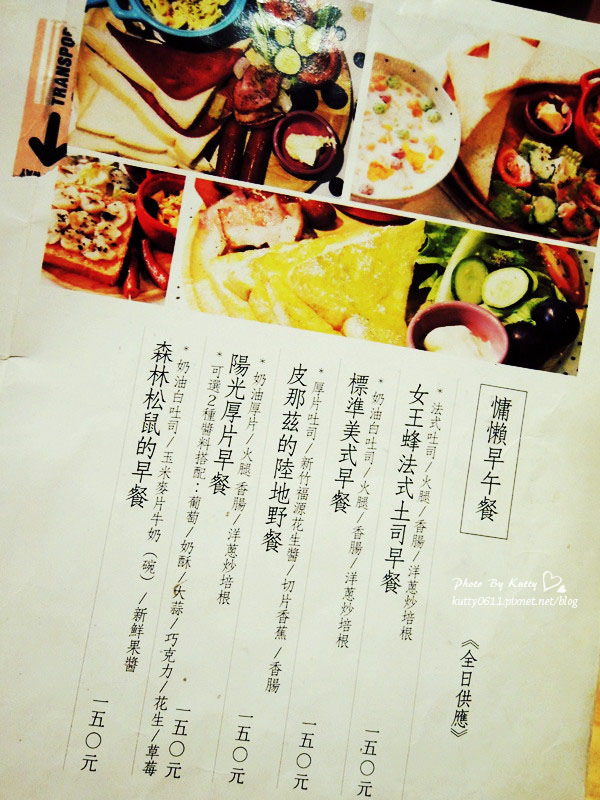 慵懶早午餐
《全日供應》
＊法式吐司/火腿/香腸/洋蔥炒培根
女王蜂法式土司早餐
一五〇元
＊奶油白吐司/火腿/香腸/洋蔥炒培根
標準美式早餐
一五〇元
＊厚片吐司/新竹福源花生醬/切片香蕉/香腸
皮那茲的陸地野餐
一五〇元
＊奶油厚片/火腿/香腸/洋蔥炒培根
陽光厚片早餐
＊可選2種醬料搭配：葡萄/奶酥/大蒜/巧克力/花生/草莓
一五〇元
＊奶油白吐司/玉米麥片牛奶（碗）/新鮮果醬
森林松鼠的早餐
一五〇元
TRANSPO
Photo By Kutty
kutty0611.pixnet.net/blog